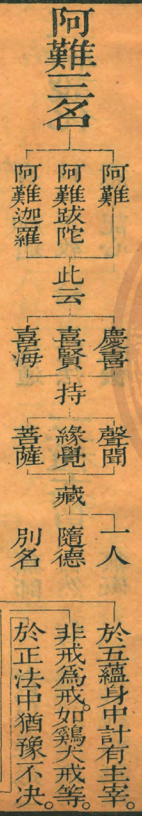 阿難三名
阿難
阿難跋陀
阿難迦羅
此云
慶喜
喜賢
喜海
持
聲聞
緣覺
菩薩
藏
一人
隨德
別名
於五蘊身中計有主宰。
非戒爲戒。如鷄犬戒等。
於正法中猶豫不決。